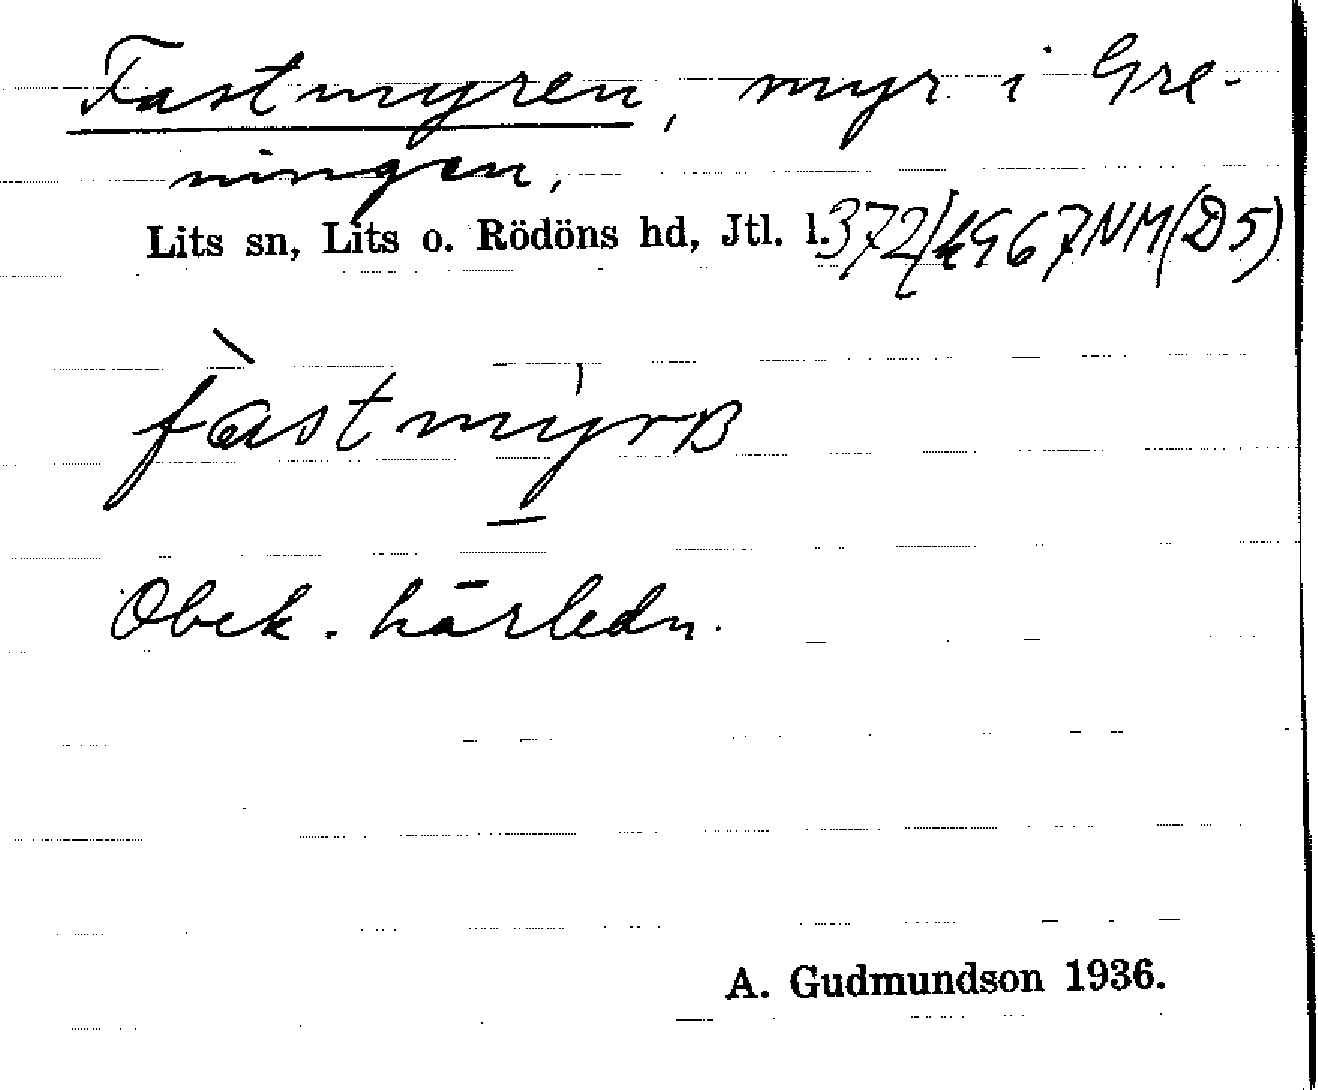 Fastmyren, myr i Gre-
ningen,
Lits sn, Lits o. Rödöns hd, Jtl. l. 372/k967NM(D5)
Obek. härledn.
A. Gudmundson 1936.